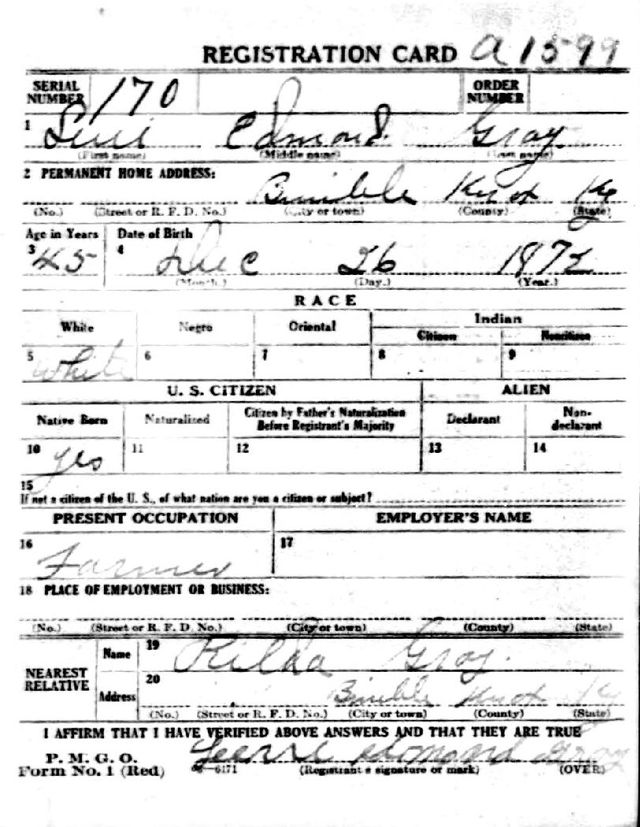 REGISTRATION CARD A 1599
SERIAL NUMBER 170 ORDER NUMBER
1 Edmond Gray
(First name) (Middle name) (Last name)
2 PERMANENT HOME ADDRESS:
Bimble Knox Ky
(No.) (Street or R. F. D. No.) (City or town) (County) (State)
Age in Years Date of Birth
3 45 4 Dec 26 1872
(Month.) (Day.) (Year.)
RACE
White Negro Oriental Indian
Citizen Noncitizen
5 White 6 7 8 9
U. S. CITIZEN ALIEN
Native Born Naturalized Citizen by Father's Naturalization Before Registrant's Majority Declarant Non-declarant
10 yes 11 12 13 14
15
If not a citizen of the U. S., of what nation are you a citizen or subject?
PRESENT OCCUPATION EMPLOYER'S NAME
16 Farmer 17
18 PLACE OF EMPLOYMENT OR BUSINESS:
(No.) (Street or R. F. D. No.) (City or town) (County) (State)
NEAREST RELATIVE Name 19 Rilda Gray
Address 20 Bimble Knox Ky
(No.) (Street or R. F. D. No.) (City or town) (County) (State)
I AFFIRM THAT I HAVE VERIFIED ABOVE ANSWERS AND THAT THEY ARE TRUE
P. M. G. O.
Form No. 1 (Red) 6171 Edmond Gray
(Registrant's signature or mark) (OVER)